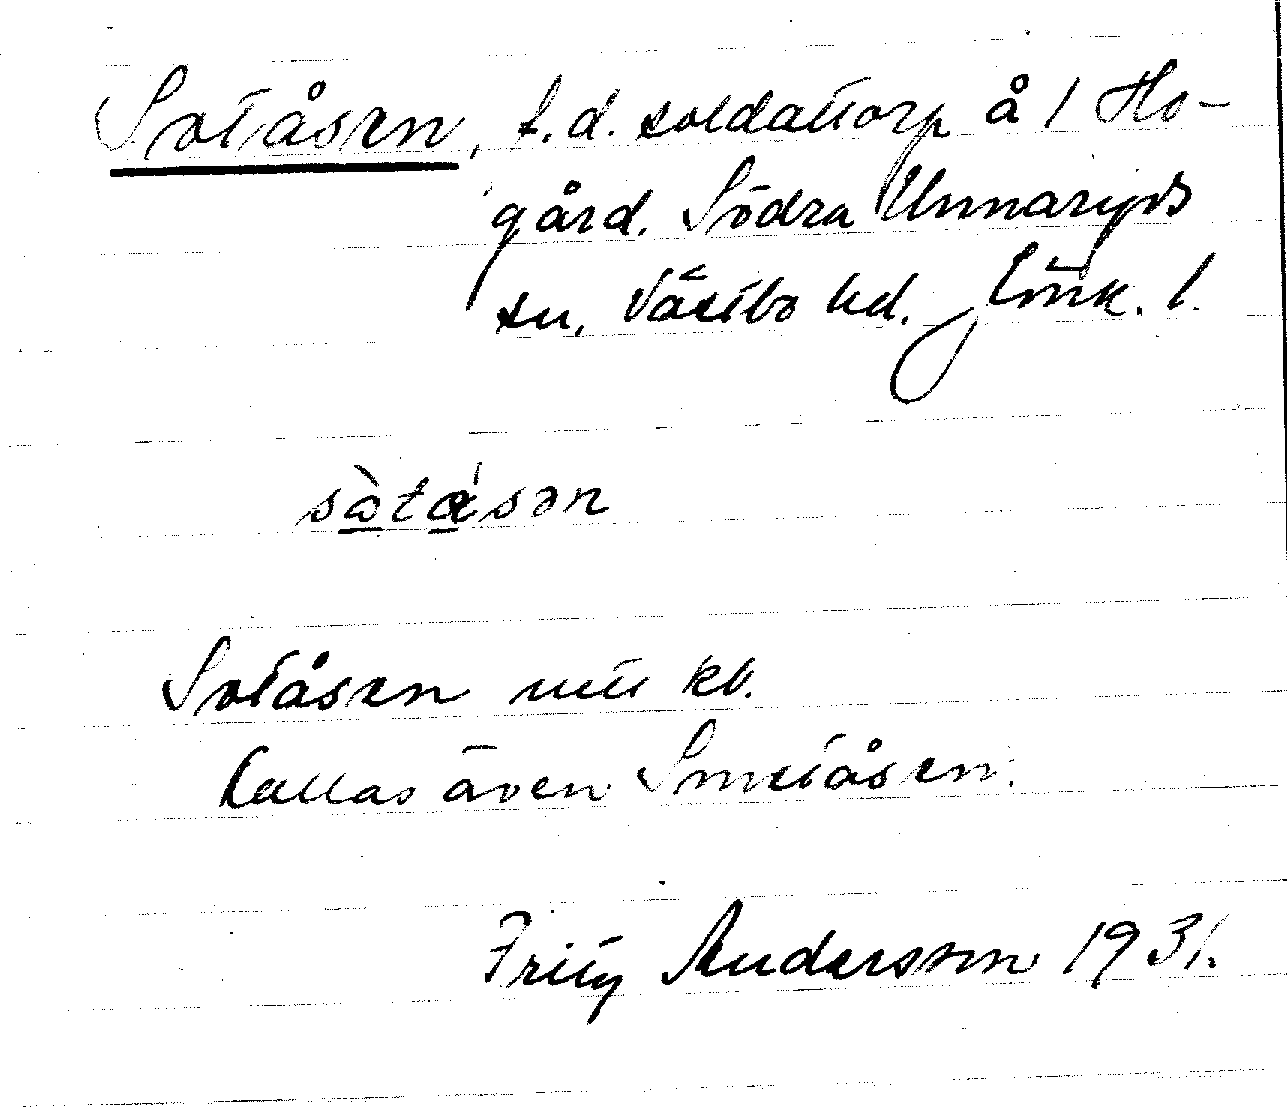 Sotåsen, f.d. soldattorp å / Ho-
gård. Södra Unnaryds
sn, Västbo hd. Jönk. l.
sòtásən
Sotåsen utt kb.
kallas även Smetåsen.
Fritz Andersson 1931.